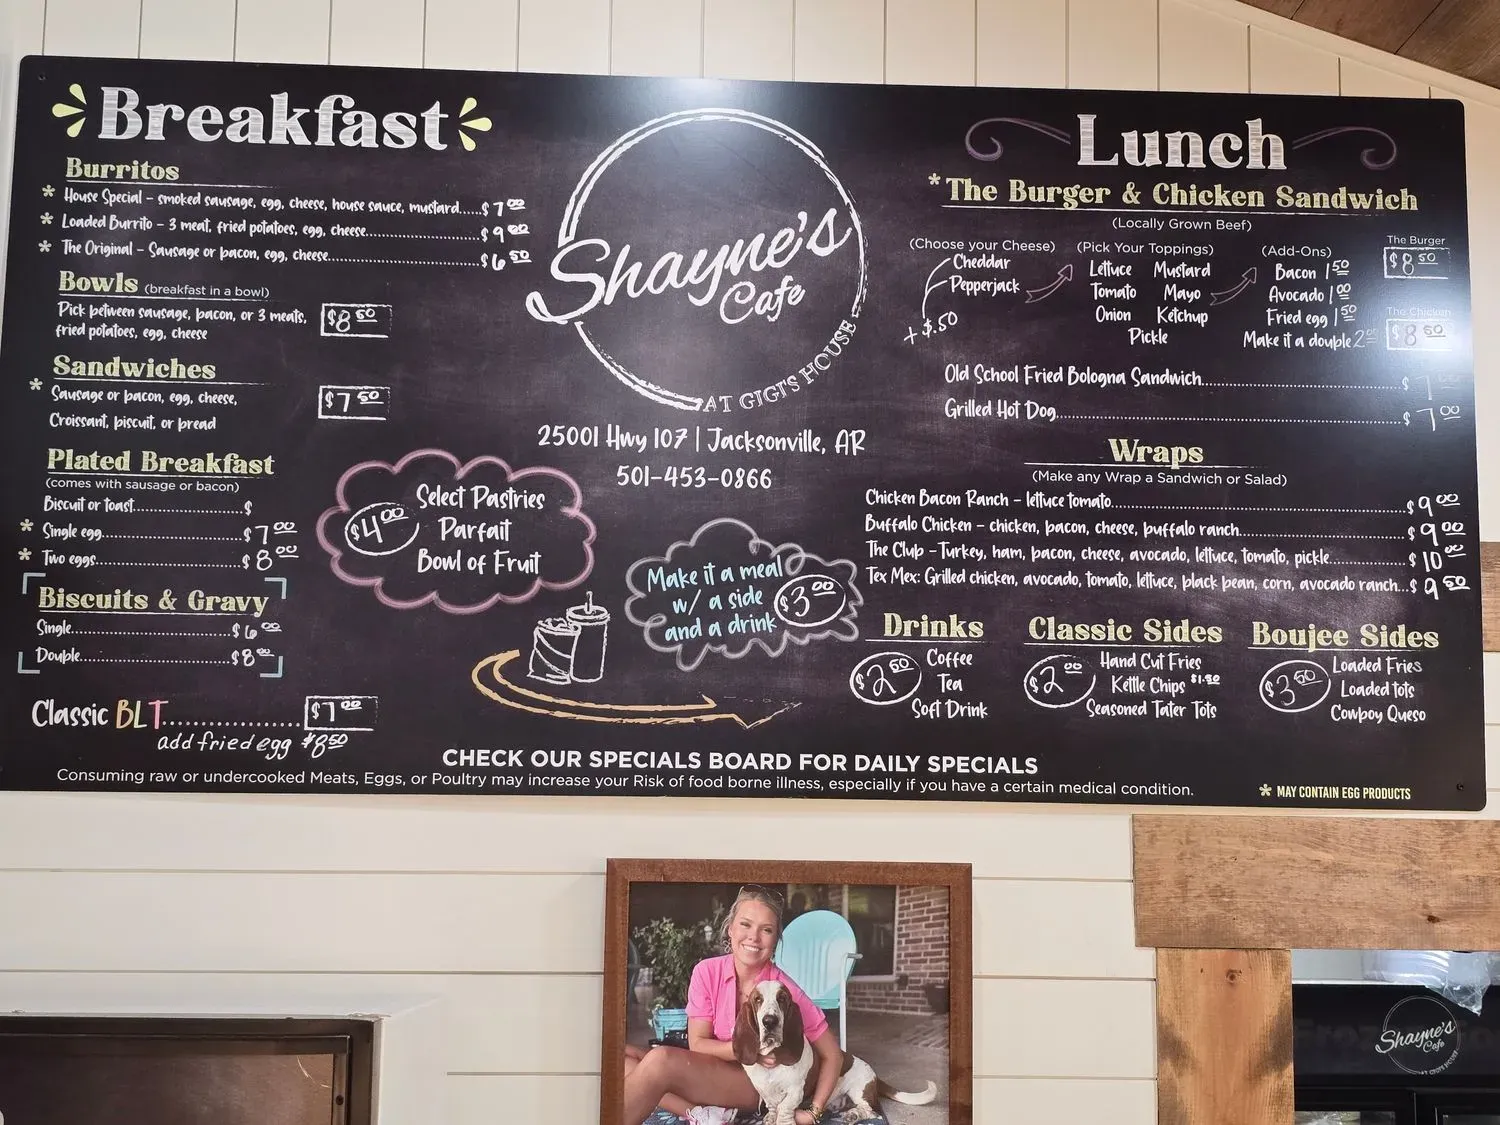 Breakfast
Burritos
* House Special - smoked sausage, egg, cheese, house sauce, mustard.....$7 00
* Loaded Burrito - 3 meat, fried potatoes, egg, cheese.....$9 00
* The Original - Sausage or bacon, egg, cheese.....$6 50
Bowls (breakfast in a bowl)
Pick between sausage, bacon, or 3 meats,
fried potatoes, egg, cheese
$8 50
Sandwiches
* Sausage or bacon, egg, cheese,
Croissant, biscuit, or bread
$7 50
Plated Breakfast
(comes with sausage or bacon)
Biscuit or toast.....$
* Single egg.....$7 00
* Two eggs.....$8 00
Biscuits & Gravy
Single.....$6 00
Double.....$8 00
Classic BLT.....$7 00
add fried egg $8 50
Shayne's
Cafe
AT GIGI'S HOUSE
25001 Hwy 107 | Jacksonville, AR
501-453-0866
$4 00
Select Pastries
Parfait
Bowl of Fruit
Make it a meal
w/ a side
and a drink
$3 00
Lunch
* The Burger & Chicken Sandwich
(Locally Grown Beef)
(Choose your Cheese)
Cheddar
Pepperjack
+ $.50
(Pick Your Toppings)
Lettuce Mustard
Tomato Mayo
Onion Ketchup
Pickle
(Add-Ons)
Bacon 1 50
Avocado 1 00
Fried egg 1 50
Make it a double 2 00
The Burger
$8 50
The Chicken
$8 50
Old School Fried Bologna Sandwich.....$7
Grilled Hot Dog.....$7 00
Wraps
(Make any Wrap a Sandwich or Salad)
Chicken Bacon Ranch - lettuce tomato.....$9 00
Buffalo Chicken - chicken, bacon, cheese, buffalo ranch.....$9 00
The Club - Turkey, ham, bacon, cheese, avocado, lettuce, tomato, pickle.....$10 00
Tex Mex: Grilled chicken, avocado, tomato, lettuce, black bean, corn, avocado ranch...$9 50
Drinks
$2 50
Coffee
Tea
Soft Drink
Classic Sides
$2 00
Hand Cut Fries
Kettle Chips $1.50
Seasoned Tater Tots
Boujee Sides
$3 50
Loaded Fries
Loaded tots
Cowboy Queso
CHECK OUR SPECIALS BOARD FOR DAILY SPECIALS
Consuming raw or undercooked Meats, Eggs, or Poultry may increase your Risk of food borne illness, especially if you have a certain medical condition.
* MAY CONTAIN EGG PRODUCTS
Shayne's
Cafe